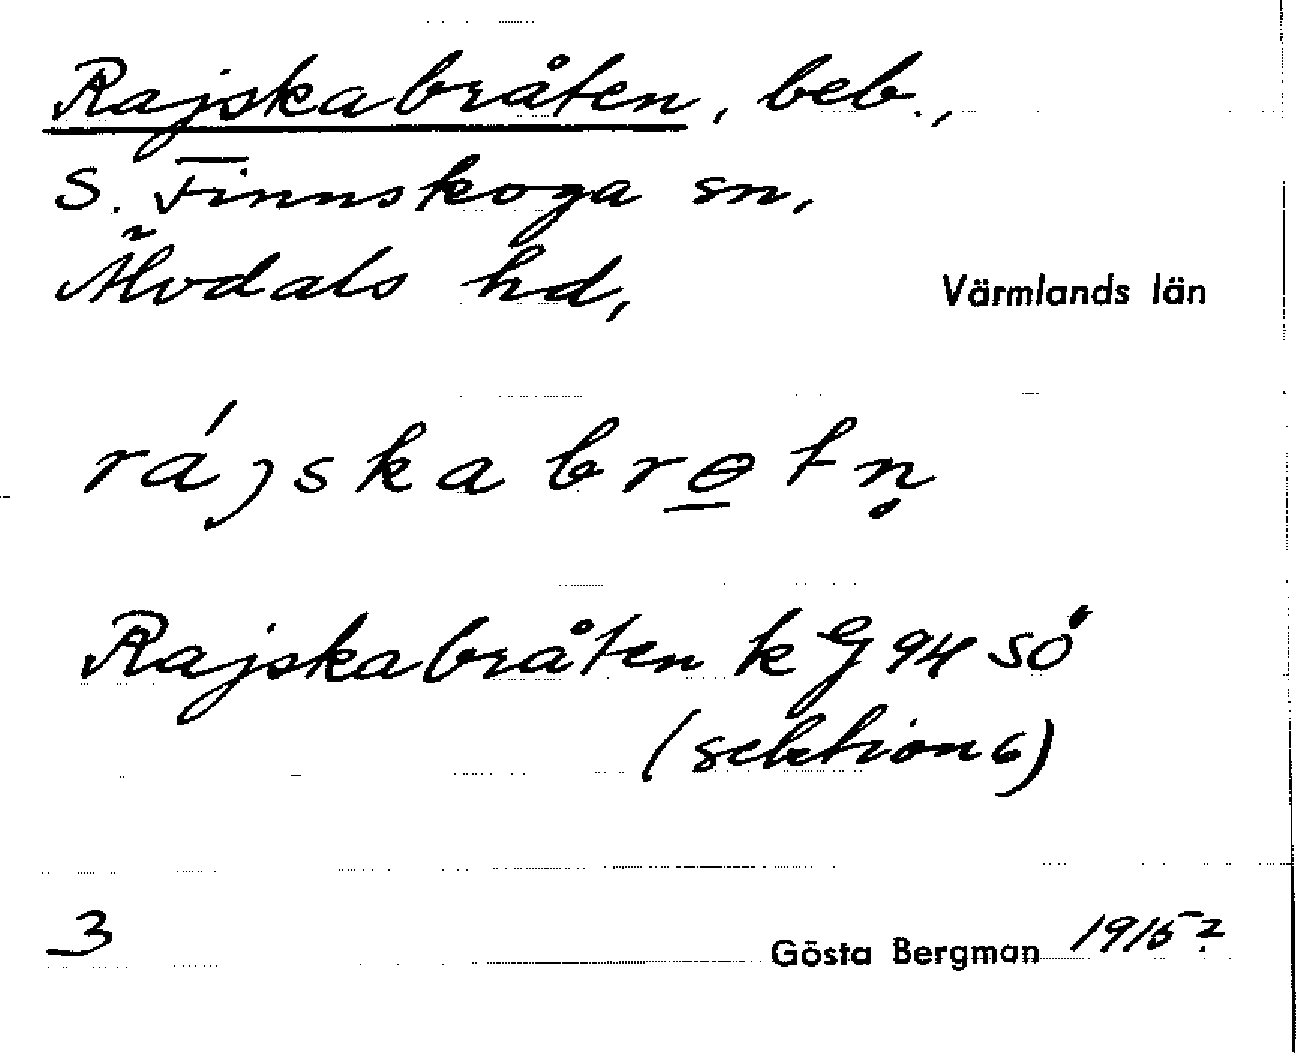 Rajskabråten, beb.,
S. Finnskoga sn,
Älvdals hd,
Värmlands län
rájskabrɵ̠tn̥
Rajskabråten k G 94 SÖ
(sektion 6)
3
Gösta Bergman 1915?